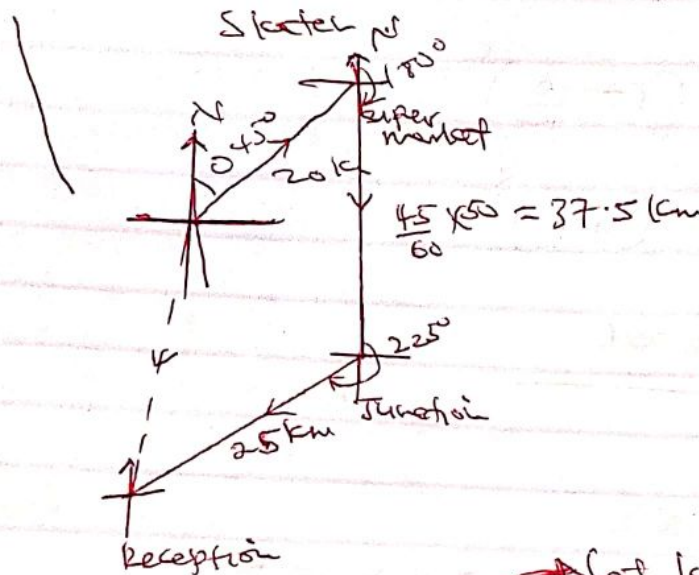 Sketch N
180°
N
Super
market
045°
20 k
45/60 x50 = 37.5 km
225°
Junction
25 km
Reception